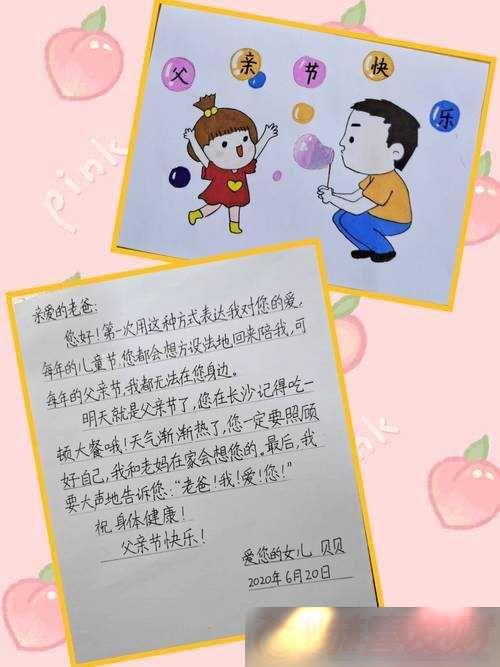 父亲节快乐
pink
亲爱的老爸:
您好!第一次用这种方式表达我对您的爱,
每年的儿童节您都会想方设法地回来陪我,可
每年的父亲节,我都无法在您身边。
明天就是父亲节了,您在长沙记得吃一
顿大餐哦!天气渐渐热了,您一定要照顾
好自己,我和老妈在家会想您的。最后,我
要大声地告诉您:“老爸!我!爱!您!”
祝身体健康!
父亲节快乐!
爱您的女儿 贝贝
2020年6月20日
pink